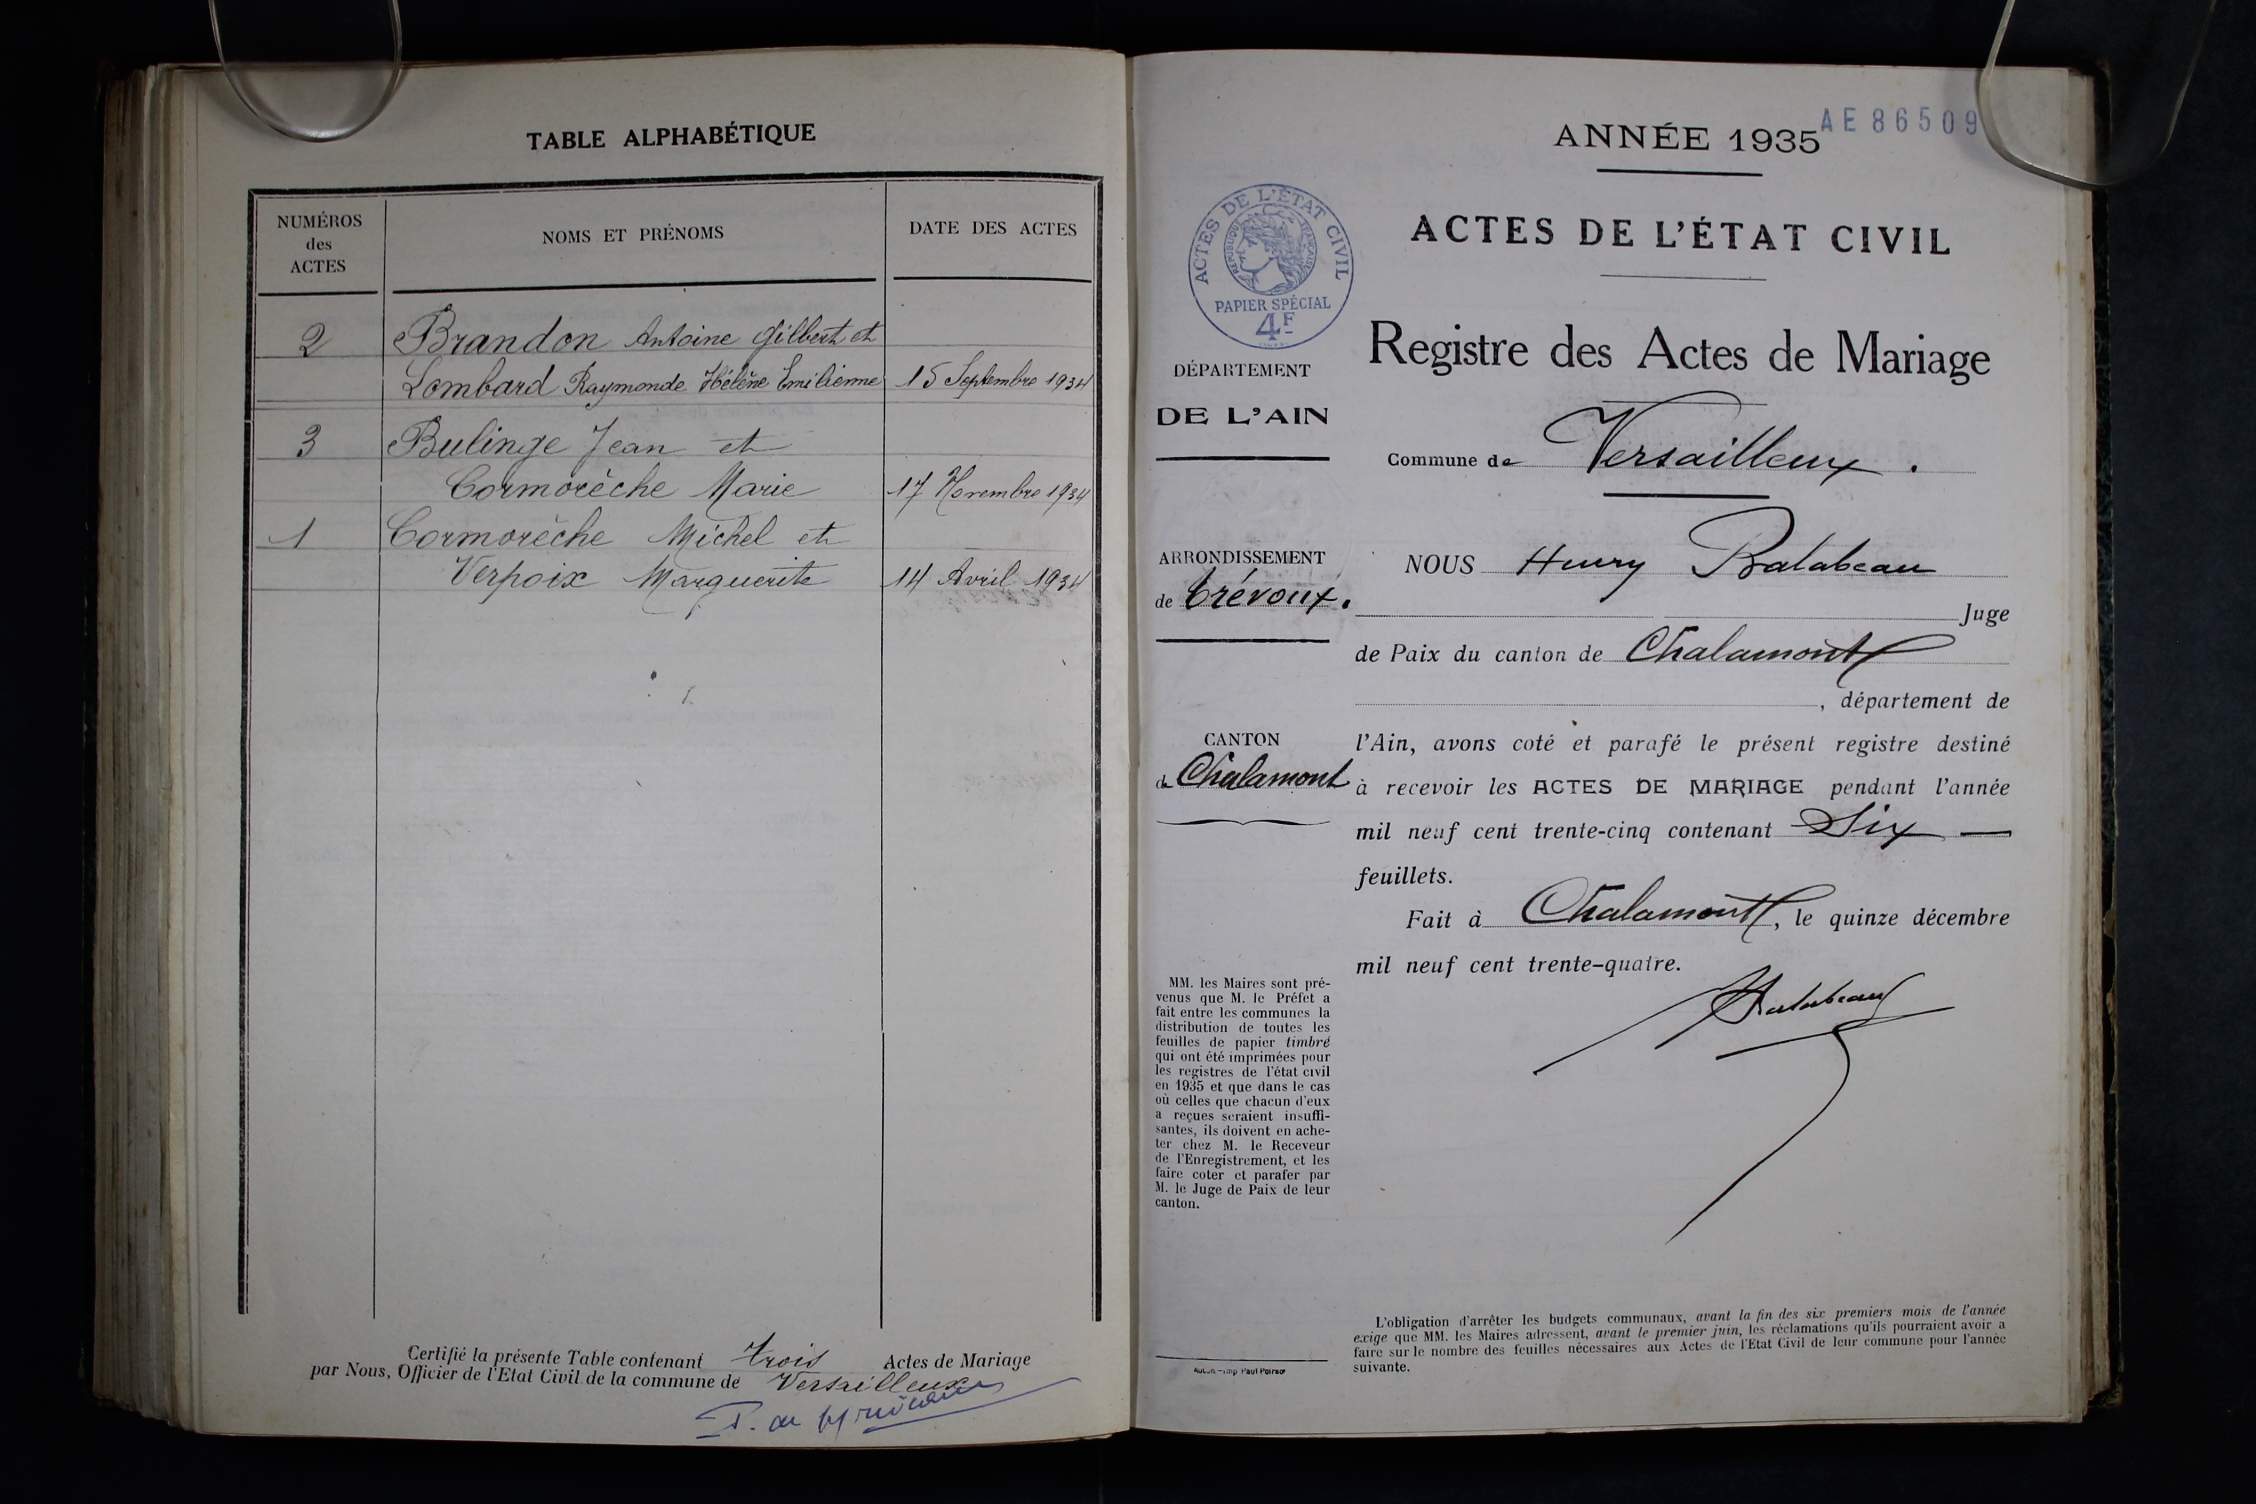 TABLE ALPHABÉTIQUE
NUMÉROS
des
ACTES
NOMS ET PRÉNOMS
DATE DES ACTES
2 Brandon Antoine Gilbert et
Lombard Raymonde Hélène Emilienne 15 Septembre 1934
3 Bulinge Jean et
Cormorèche Marie 17 Novembre 1934
1 Cormorèche Michel et
Verpoix Marguerite 14 Avril 1934
Certifié la présente Table contenant trois Actes de Mariage
par Nous, Officier de l'Etat Civil de la commune de Versailleux
AE 86509
ANNÉE 1935
ACTES DE L'ÉTAT CIVIL
ACTES DE L'ÉTAT CIVIL
RÉPUBLIQUE FRANÇAISE
PAPIER SPÉCIAL
4F
Registre des Actes de Mariage
DÉPARTEMENT
DE L'AIN
Commune de Versailleux.
ARRONDISSEMENT
de Trévoux.
CANTON
de Chalamont
NOUS Henry Balabeau
Juge
de Paix du canton de Chalamont
, département de
l'Ain, avons coté et parafé le présent registre destiné
à recevoir les ACTES DE MARIAGE pendant l'année
mil neuf cent trente-cinq contenant Six —
feuillets.
Fait à Chalamont, le quinze décembre
mil neuf cent trente-quatre.
MM. les Maires sont pré-
venus que M. le Préfet a
fait entre les communes la
distribution de toutes les
feuilles de papier timbré
qui ont été imprimées pour
les registres de l'état civil
en 1935 et que dans le cas
où celles que chacun d'eux
a reçues seraient insuffi-
santes, ils doivent en ache-
ter chez M. le Receveur
de l'Enregistrement, et les
faire coter et parafer par
M. le Juge de Paix de leur
canton.
L'obligation d'arrêter les budgets communaux, avant la fin des six premiers mois de l'année
exige que MM. les Maires adressent, avant le premier juin, les réclamations qu'ils pourraient avoir a
faire sur le nombre des feuilles nécessaires aux Actes de l'Etat Civil de leur commune pour l'année
suivante.